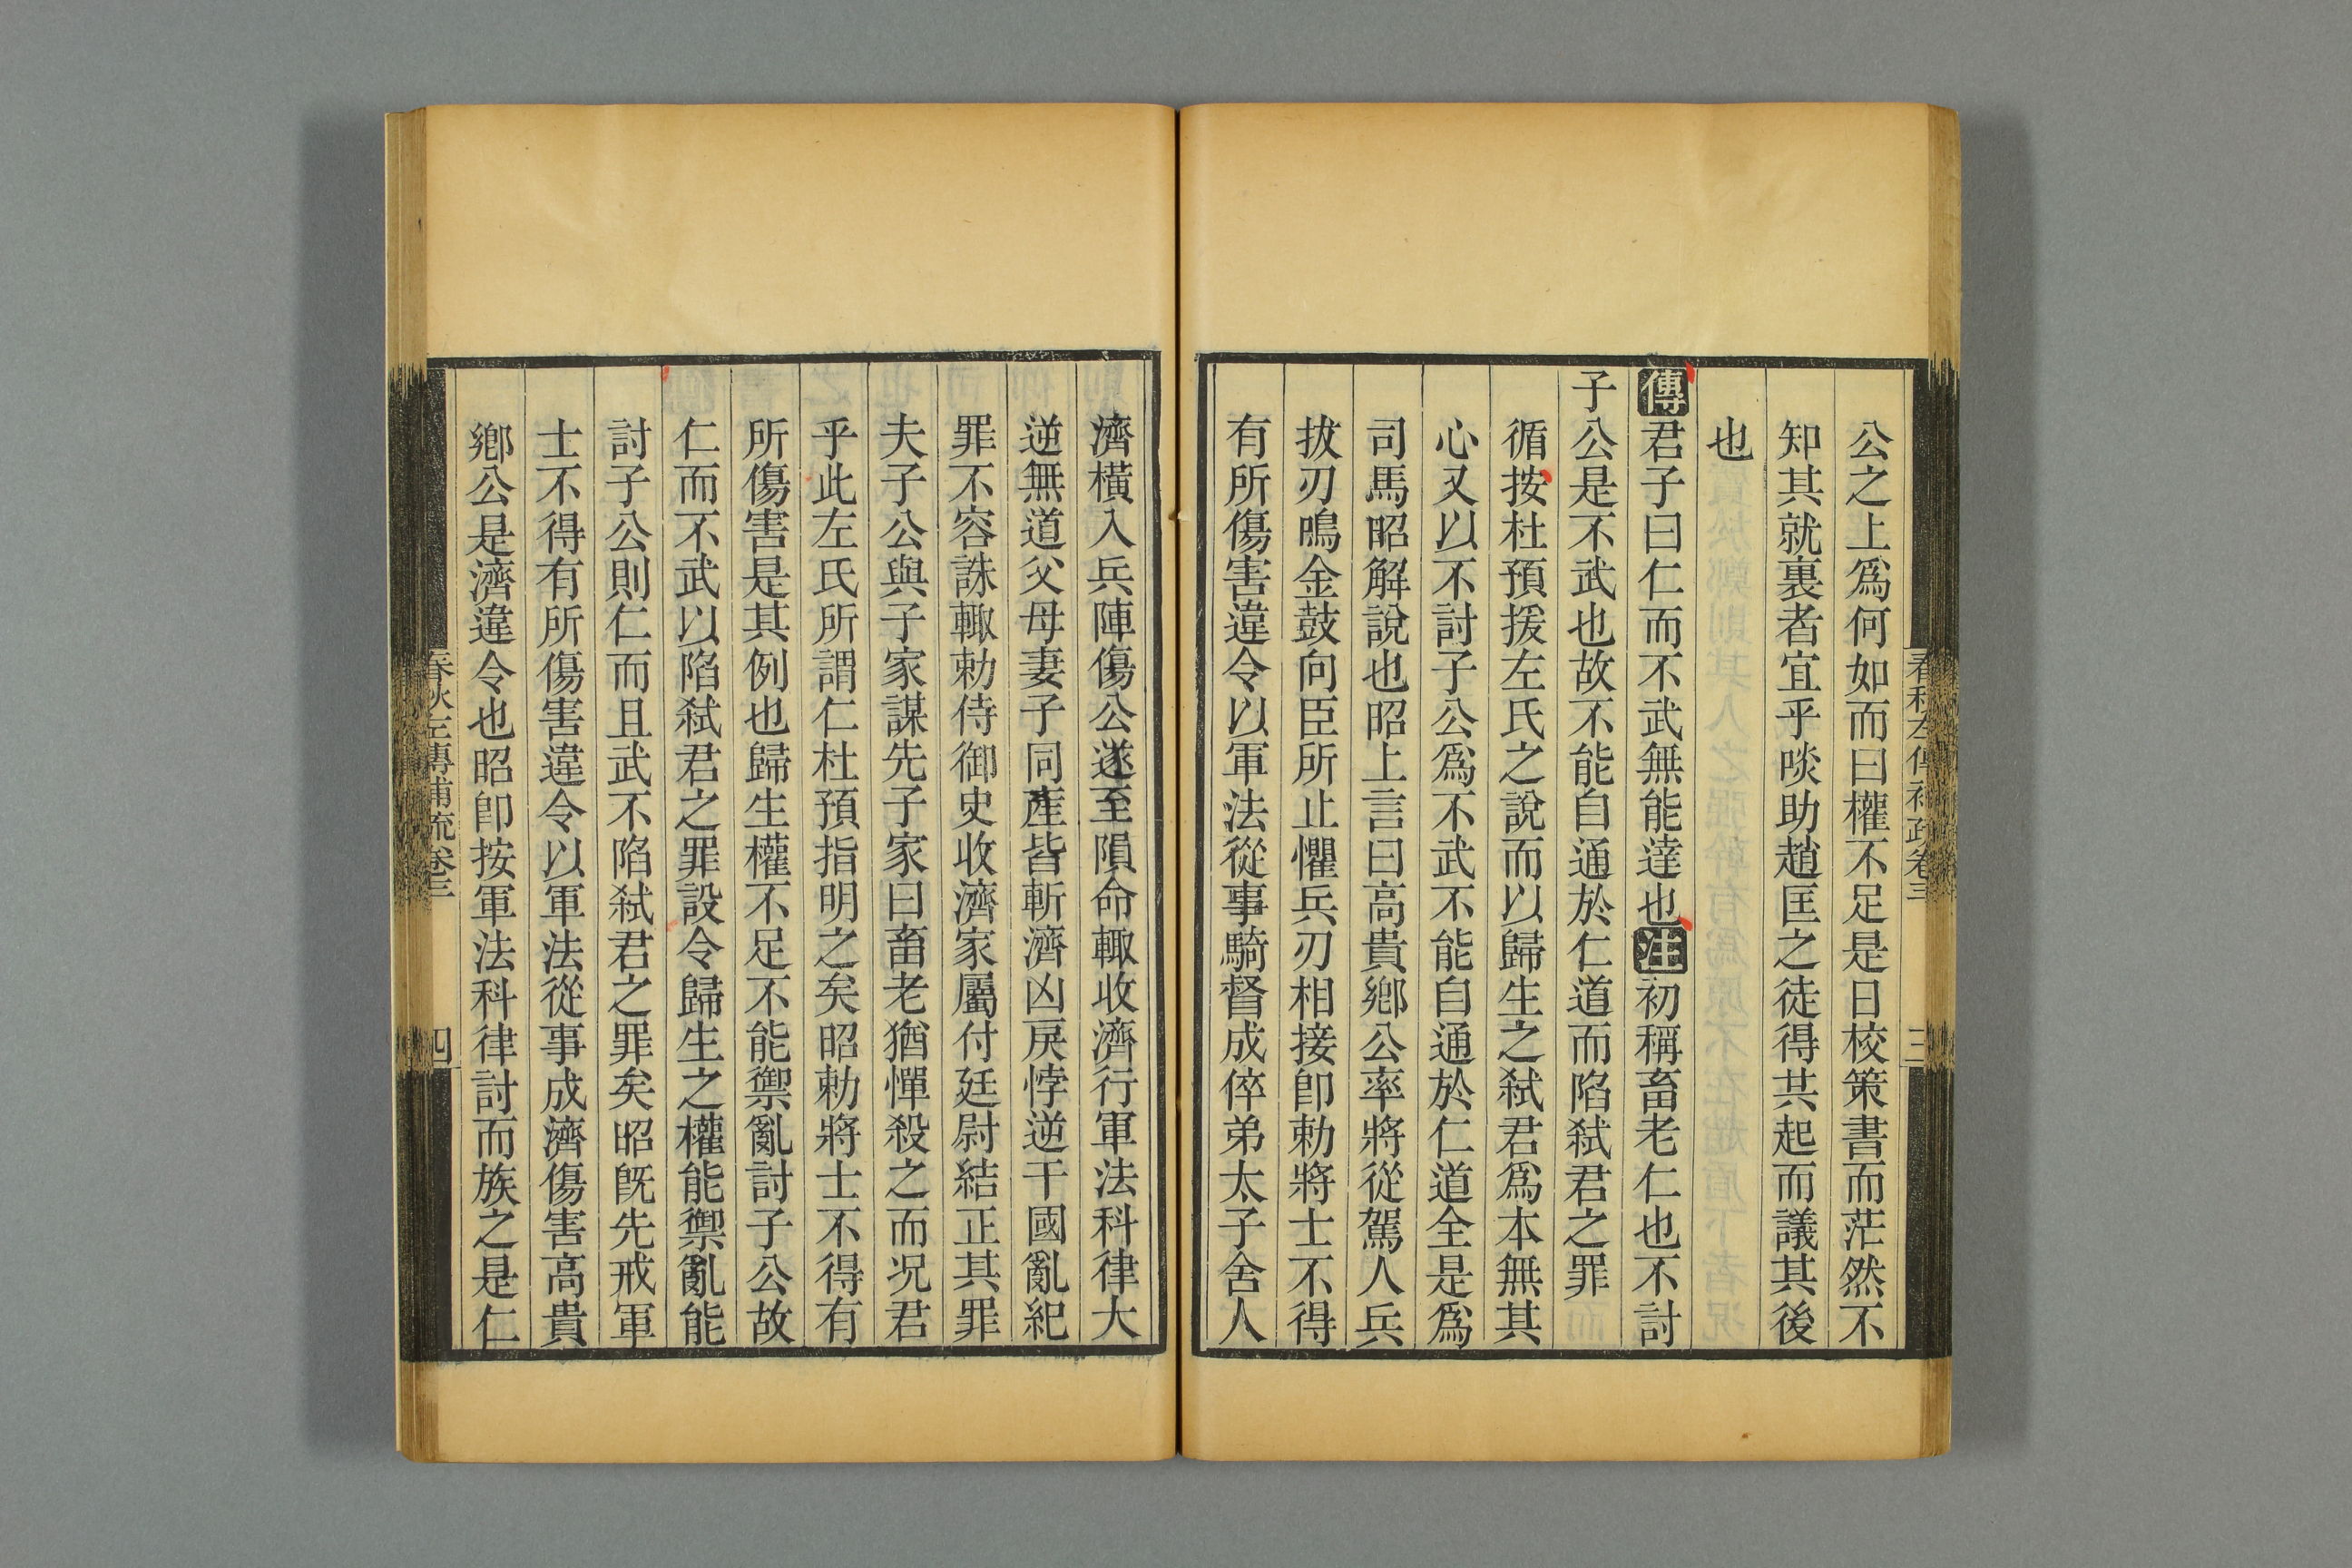 公之上爲何如而曰權不足是日校策書而茫然不
知其就裏者宜乎啖助趙匡之徒得共起而議其後
也
傳君子曰仁而不武無能達也注初稱畜老仁也不討
子公是不武也故不能自通於仁道而陷弑君之罪
循按杜預援左氏之說而以歸生之弑君爲本無其
心又以不討子公爲不武不能自通於仁道全是爲
司馬昭解說也昭上言曰高貴鄉公率將從駕人兵
拔刃鳴金鼓向臣所止懼兵刃相接卽勅將士不得
有所傷害違令以軍法從事騎督成倅弟太子舍人
春秋左傳補疏卷三
三
濟橫入兵陣傷公遂至隕命輙收濟行軍法科律大
逆無道父母妻子同產皆斬濟凶戾悖逆干國亂紀
罪不容誅輙勅侍御史收濟家屬付廷尉結正其罪
夫子公與子家謀先子家曰畜老猶憚殺之而况君
乎此左氏所謂仁杜預指明之矣昭勅將士不得有
所傷害是其例也歸生權不足不能禦亂討子公故
仁而不武以陷弑君之罪設令歸生之權能禦亂能
討子公則仁而且武不陷弑君之罪矣昭旣先戒軍
士不得有所傷害違令以軍法從事成濟傷害高貴
鄉公是濟違令也昭卽按軍法科律討而族之是仁
春秋左傳補疏卷三
四